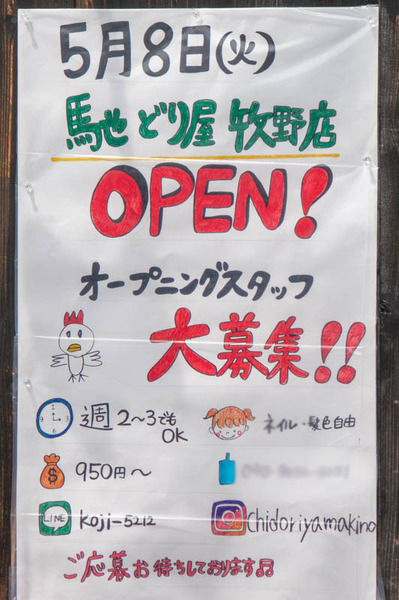 5月8日(火)
馳どり屋 牧野店
OPEN!
オープニングスタッフ
大募集!!
週2~3でもOK
ネイル・髪色自由
950円~
LINE koji-5212
Chidoriyamakino
ご応募お待ちしております♫